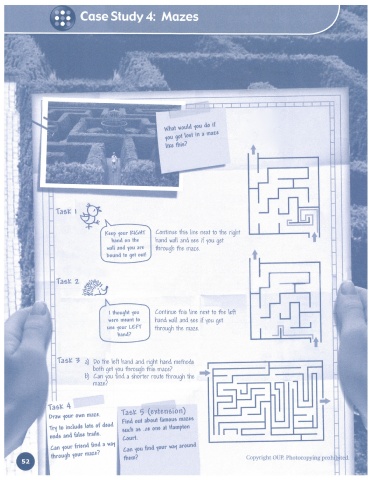 Case Study 4: Mazes
What would you do if
you got lost in a maze
like this?
Task 1
Keep your RIGHT
hand on the
wall and you are
bound to get out!
Continue this line next to the right
hand wall and see if you get
through the maze.
Task 2
I thought you
were meant to
use your LEFT
hand?
Continue this line next to the left
hand wall and see if you get
through the maze.
Task 3
a) Do the left hand and right hand methods
both get you through this maze?
b) Can you find a shorter route through the
maze?
Task 4
Draw your own maze.
Try to include lots of dead
ends and false trails.
Can your friend find a way
through your maze?
Task 5 (extension)
Find out about famous mazes
such as one at Hampton
Court.
Can you find your way around
them?
52
Copyright OUP. Photocopying prohibited.